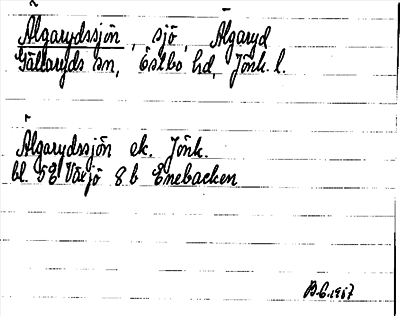 Älgarydssjön, sjö, Älgaryd
Gällaryds sn, Östbo hd, Jönk. l.
Älgarydssjön ek. Jönk.
bl. 5E Växjö 8 b Enebacken
B.G. 1987